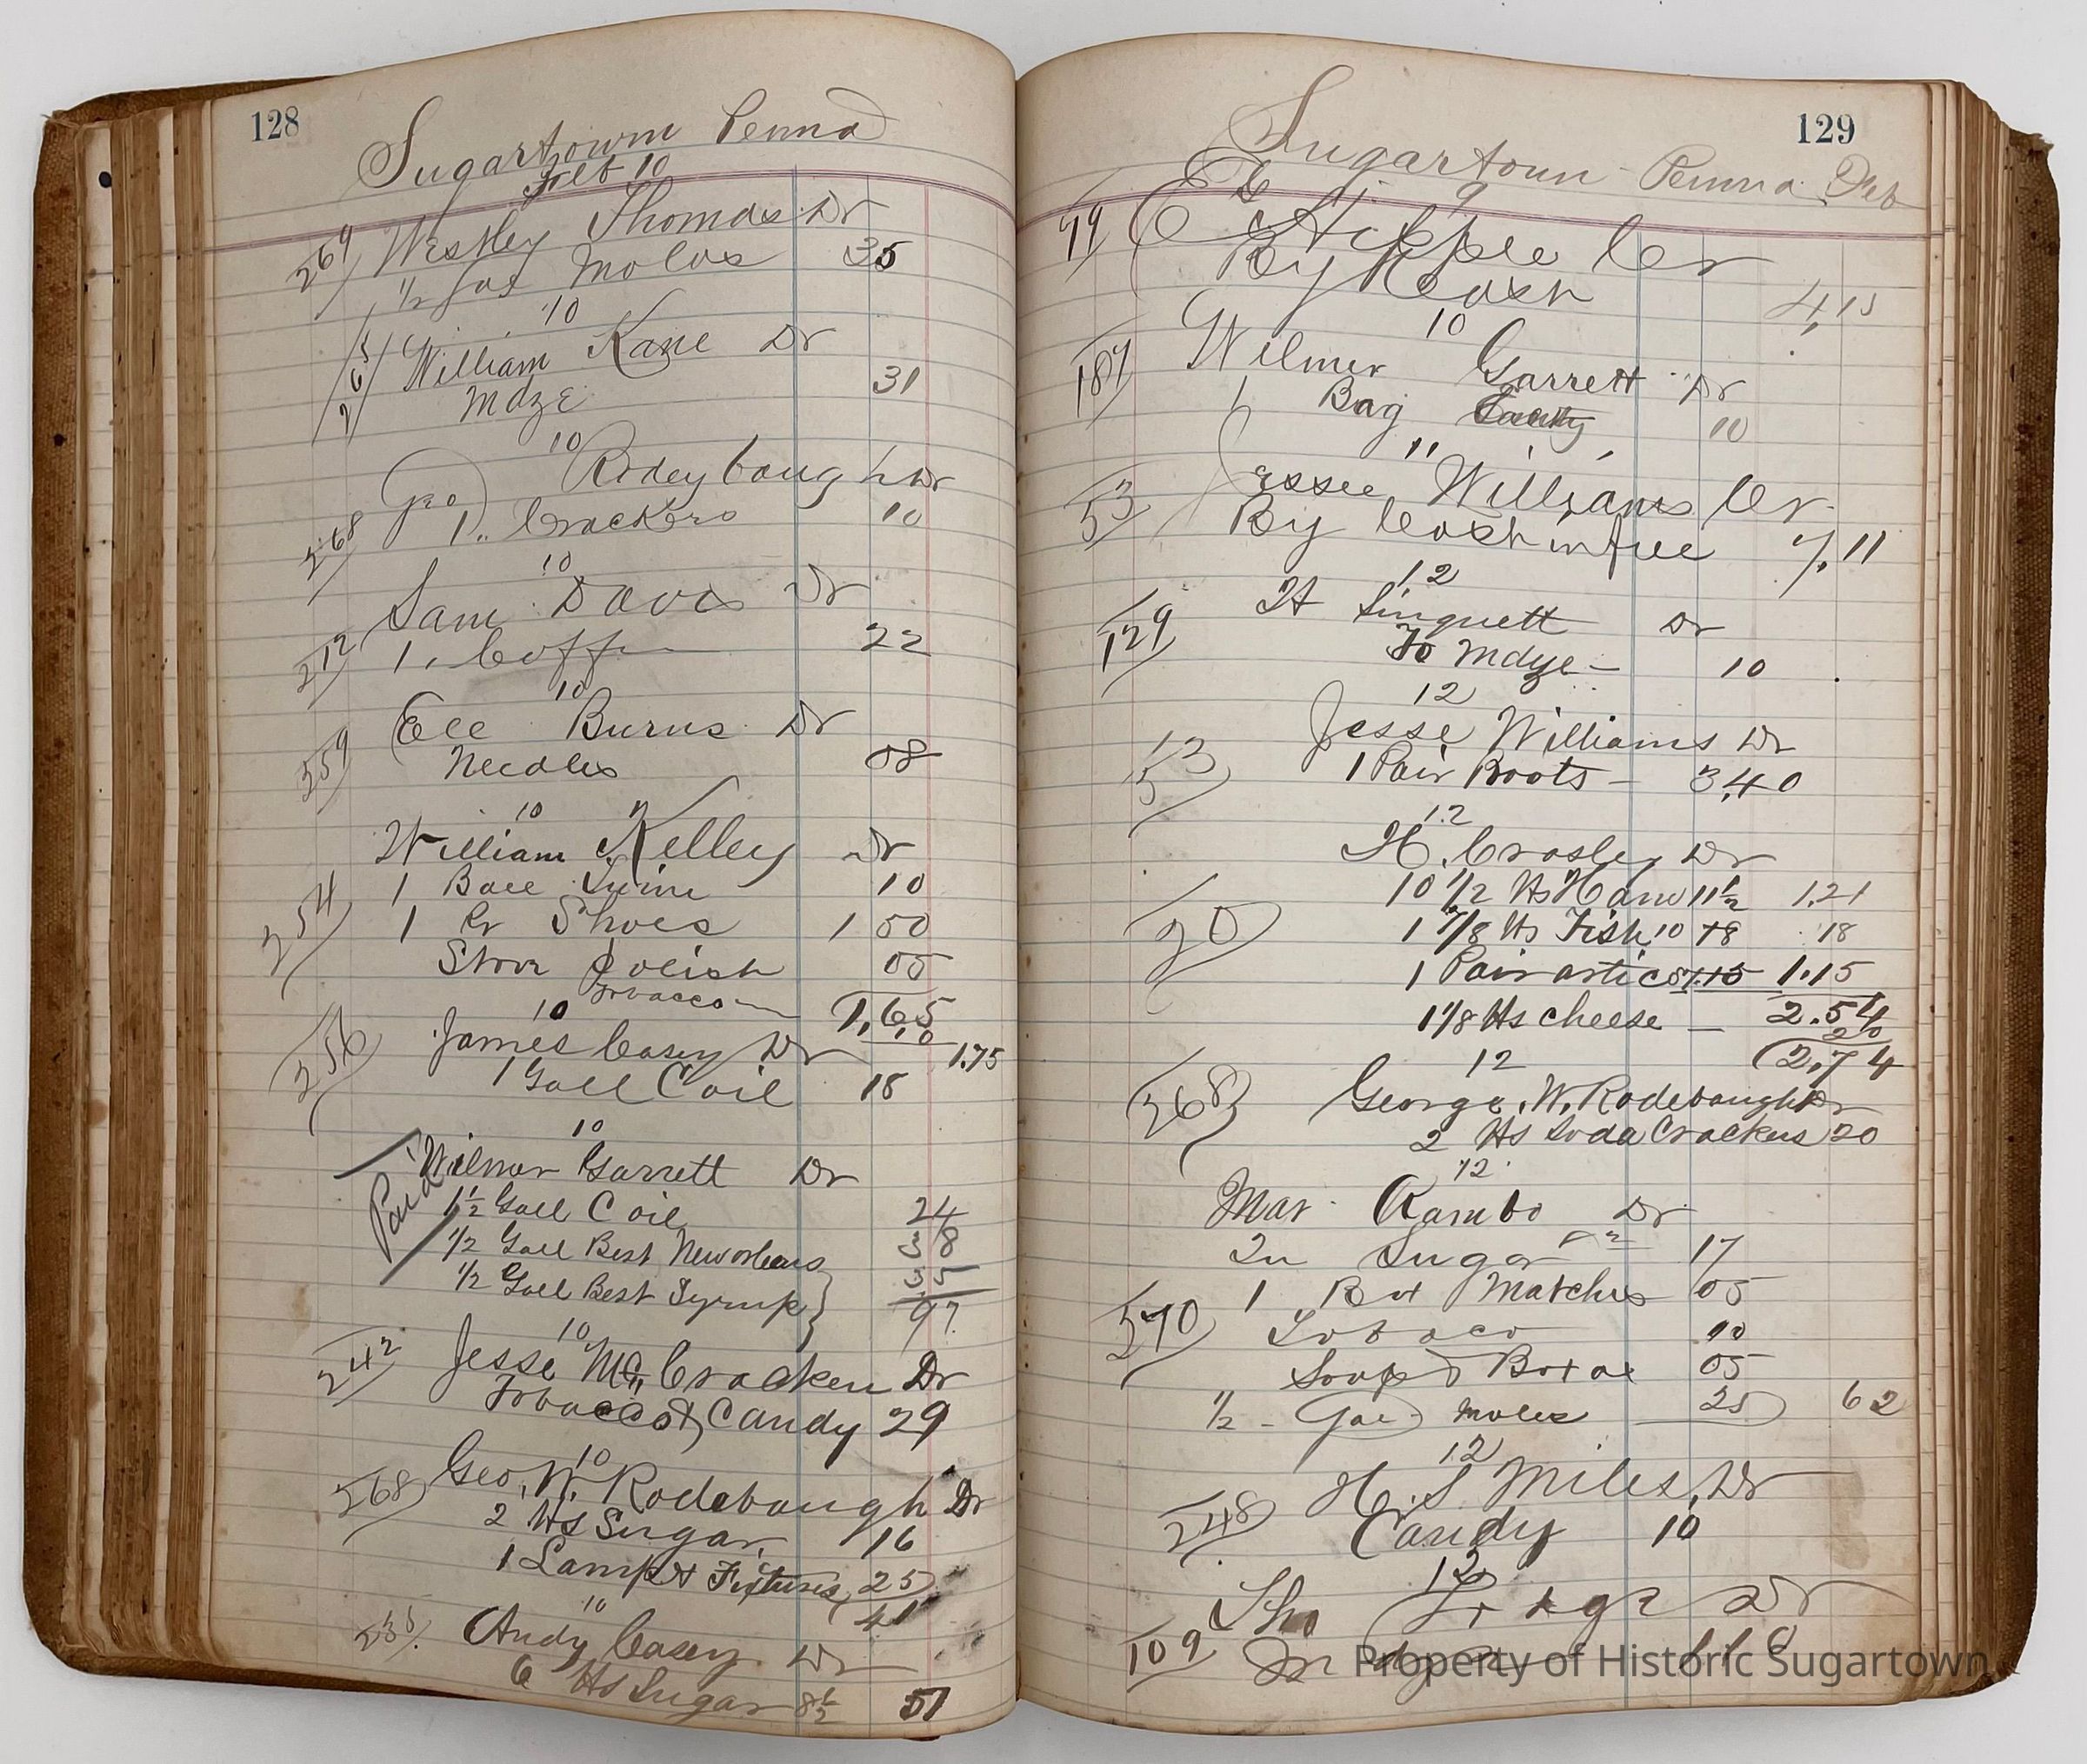 128
Sugartown Penna
Feb 10
269 Westley Thomas Dr
1/2 Gal Molas 35
10
265 William Kane Dr
Mdze 31
10
268 Geo Rideybough Dr
1 " Crackers 10
10
212 Sam Davis Dr
1 " Coffee 22
10
259 Ell Burns Dr
Needles 08
10
254 William Kelley Dr
1 Ball Twine 10
1 Pr Shoes 1 50
Stove Polish 05
Tobacco 1,65
10 ,10
1.75
256 James Casey Dr
1 Gall C oil 18
10
Paid Wilmer Garrett Dr
1 1/2 Gall C oil 24
1/2 Gall Best New orleans 38
1/2 Gall Best Syrup 35
97
10
242 Jesse McCracken Dr
Tobacco & Candy 29
10
268 Geo. W. Rodebough Dr
2 lbs Sugar 16
1 Lamp & Fixtures 25
41
10
235 Andy Casey Dr
6 lbs Sugar 8 1/2 51
129
Sugartown Penna Feb
9
79 E Hipple Cr
By Cash 4,15
10
187 Wilmer Garrett Dr
1 Bag 10
11
53 Jessee Williams Cr
By Cash in full 7.11
12
129 Singuett Dr
To Mdze 10
12
53 Jesse Williams Dr
1 Pair Boots 3,40
12
20 H. Crosley Dr
10 1/2 lbs Ham 11 1/2 1.21
1 7/8 lbs Fish 10 18 18
1 Pair artics 1.15 1.15
2.54
1 1/8 lbs cheese 20
2.74
12
268 George. W. Rodebough Dr
2 lbs Soda Crackers 20
12
Mar Rambo Dr
2 " Sugar 17
1 Box Matches 05
270 Tobaco 10
Soap 05
1/2 Gal Moles 25 62
12
248 H. S Miles, Dr
Candy 10
12
109 Tho Dr
Property of Historic Sugartown